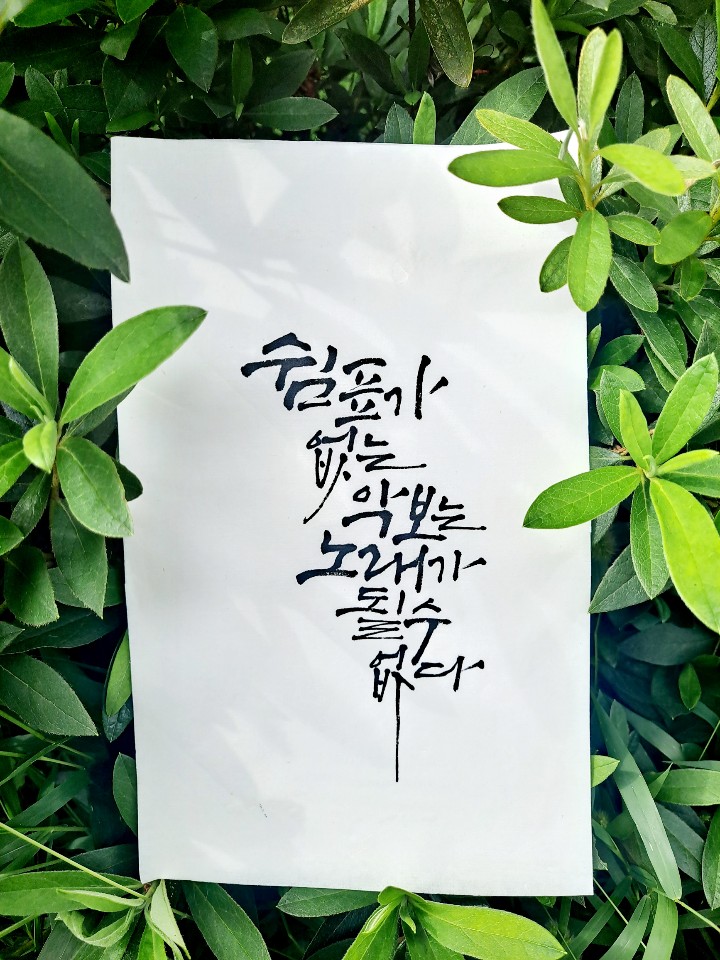 쉼표가
없는
악보는
노래가
될 수
없다